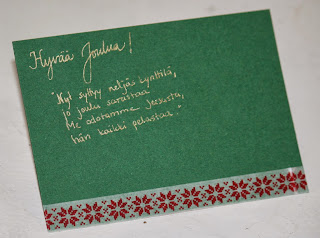 Hyvää Joulua!
"Nyt syttyy neljäs kynttilä,
jo joulu sarastaa
Me odotamme Jeesusta,
hän kaikki pelastaa."